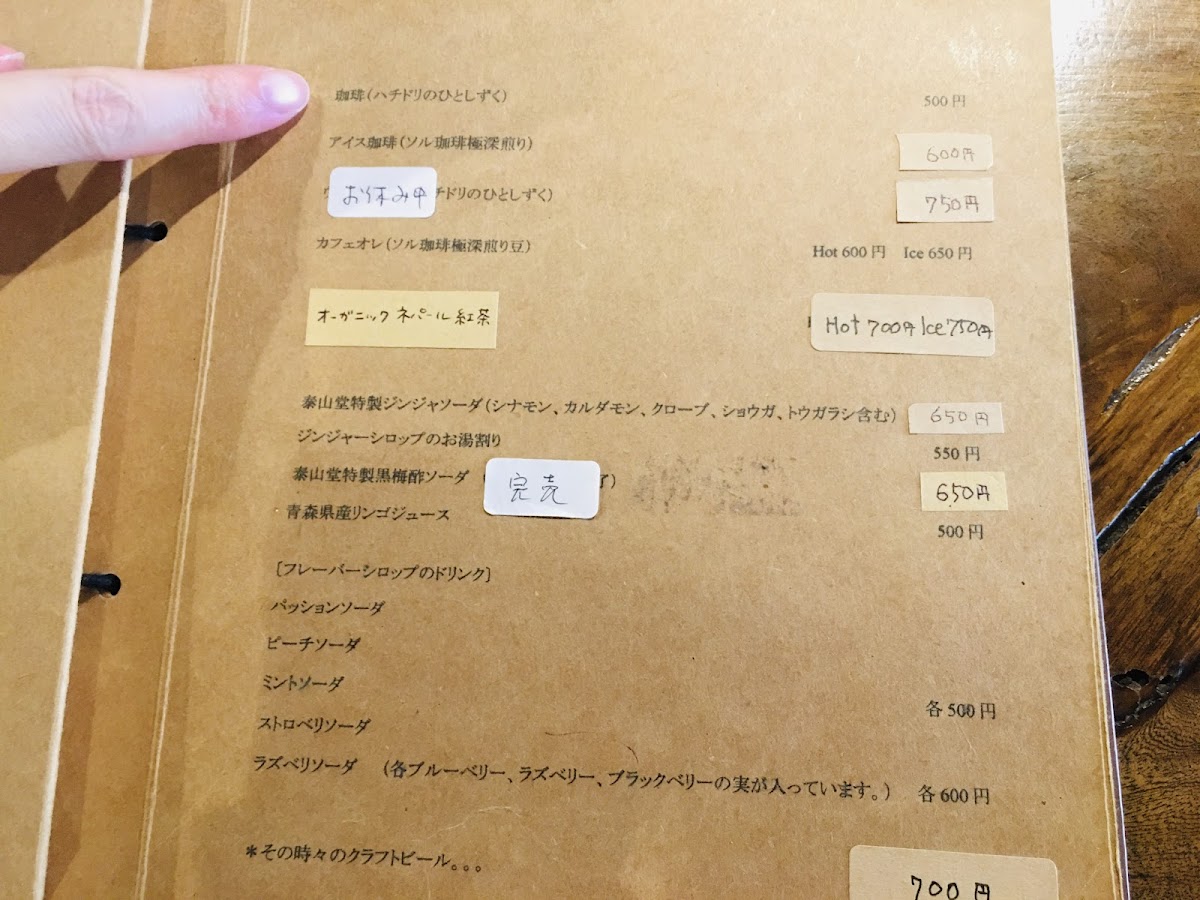 珈琲(ハチドリのひとしずく) 500円
アイス珈琲(ソル珈琲極深煎り) 600円
お休み中 チドリのひとしずく) 750円
カフェオレ(ソル珈琲極深煎り豆) Hot 600円 Ice 650円
オーガニック ネパール 紅茶 Hot 700円 Ice 750円
泰山堂特製ジンジャソーダ(シナモン、カルダモン、クローブ、ショウガ、トウガラシ含む) 650円
ジンジャーシロップのお湯割り 550円
泰山堂特製黒梅酢ソーダ ( 完売 了) 650円
青森県産リンゴジュース 500円
[フレーバーシロップのドリンク]
パッションソーダ
ピーチソーダ
ミントソーダ 各500円
ストロベリソーダ
ラズベリソーダ (各ブルーベリー、ラズベリー、ブラックベリーの実が入っています。) 各600円
*その時々のクラフトビール。。。 700円